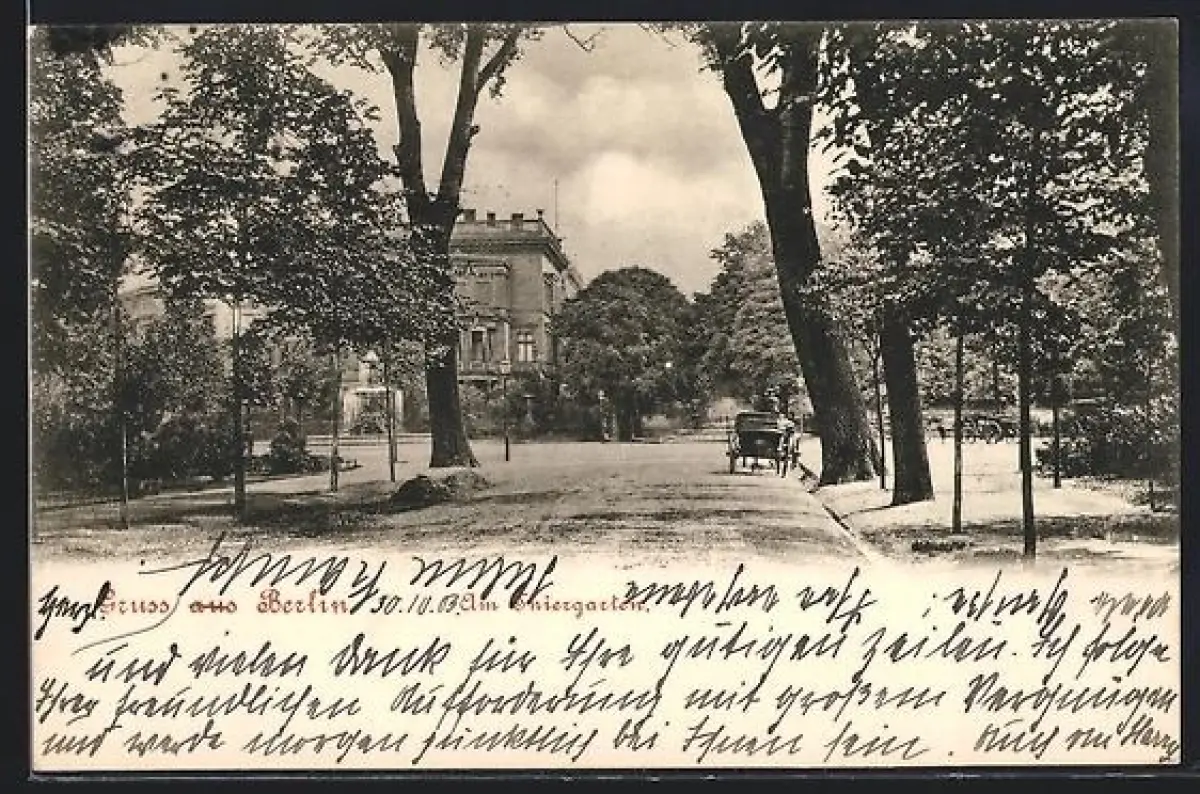 Herzl. Gruss aus Berlin, 30.10.03. Am Thiergarten.
und vielen Dank für Ihre gütigen Zeilen. Ich folge
Ihrer freundlichen Aufforderung mit großem Vergnügen
und werde morgen pünktlich bei Ihnen sein. Auch von Harry